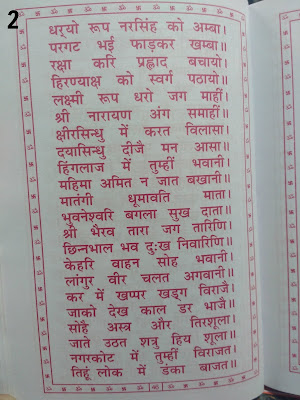 2
धर्‌यो रूप नरसिंह को अम्बा।
परगट भई फाड़कर खम्बा॥
रक्षा करि प्रह्लाद बचायो।
हिरण्याक्ष को स्वर्ग पठायो॥
लक्ष्मी रूप धरो जग माहीं।
श्री नारायण अंग समाहीं॥
क्षीरसिन्धु में करत विलासा।
दयासिन्धु दीजै मन आसा॥
हिंगलाज में तुम्हीं भवानी।
महिमा अमित न जात बखानी॥
मातंगी धूमावति माता।
भुवनेश्वरि बगला सुख दाता॥
श्री भैरव तारा जग तारिणि।
छिन्नभाल भव दुःख निवारिणि॥
केहरि वाहन सोह भवानी।
लांगुर वीर चलत अगवानी॥
कर में खप्पर खड्ग विराजै।
जाको देख काल डर भाजै॥
सोहै अस्त्र और तिरशूला।
जाते उठत शत्रु हिय शूला॥
नगरकोट में तुम्हीं विराजत।
तिहूं लोक में डंका बाजत॥